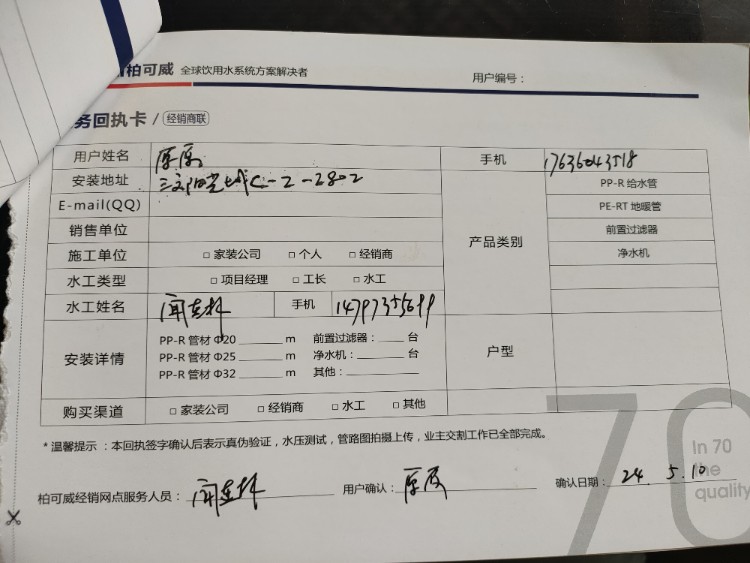 柏可威 全球饮用水系统方案解决者 用户编号：
务回执卡 / 经销商联
用户姓名 原原 手机 17636043518
安装地址 阳光城C-2-2802 PP-R 给水管
E-mail(QQ) PE-RT 地暖管
销售单位 产品类别 前置过滤器
施工单位 □ 家装公司 □ 个人 □ 经销商 净水机
水工类型 □ 项目经理 □ 工长 □ 水工
水工姓名 手机
PP-R 管材 Φ20 ______ m 前置过滤器： ______ 台
安装详情 PP-R 管材 Φ25 ______ m 净水机： ______ 台 户型
PP-R 管材 Φ32 ______ m 其他： ______
购买渠道 □ 家装公司 □ 经销商 □ 水工 □ 其他
70
* 温馨提示：本回执签字确认后表示真伪验证，水压测试，管路图拍摄上传，业主交割工作已全部完成。
In 70
the
quality
柏可威经销网点服务人员： 用户确认： 原原 确认日期： 24. 5. 10